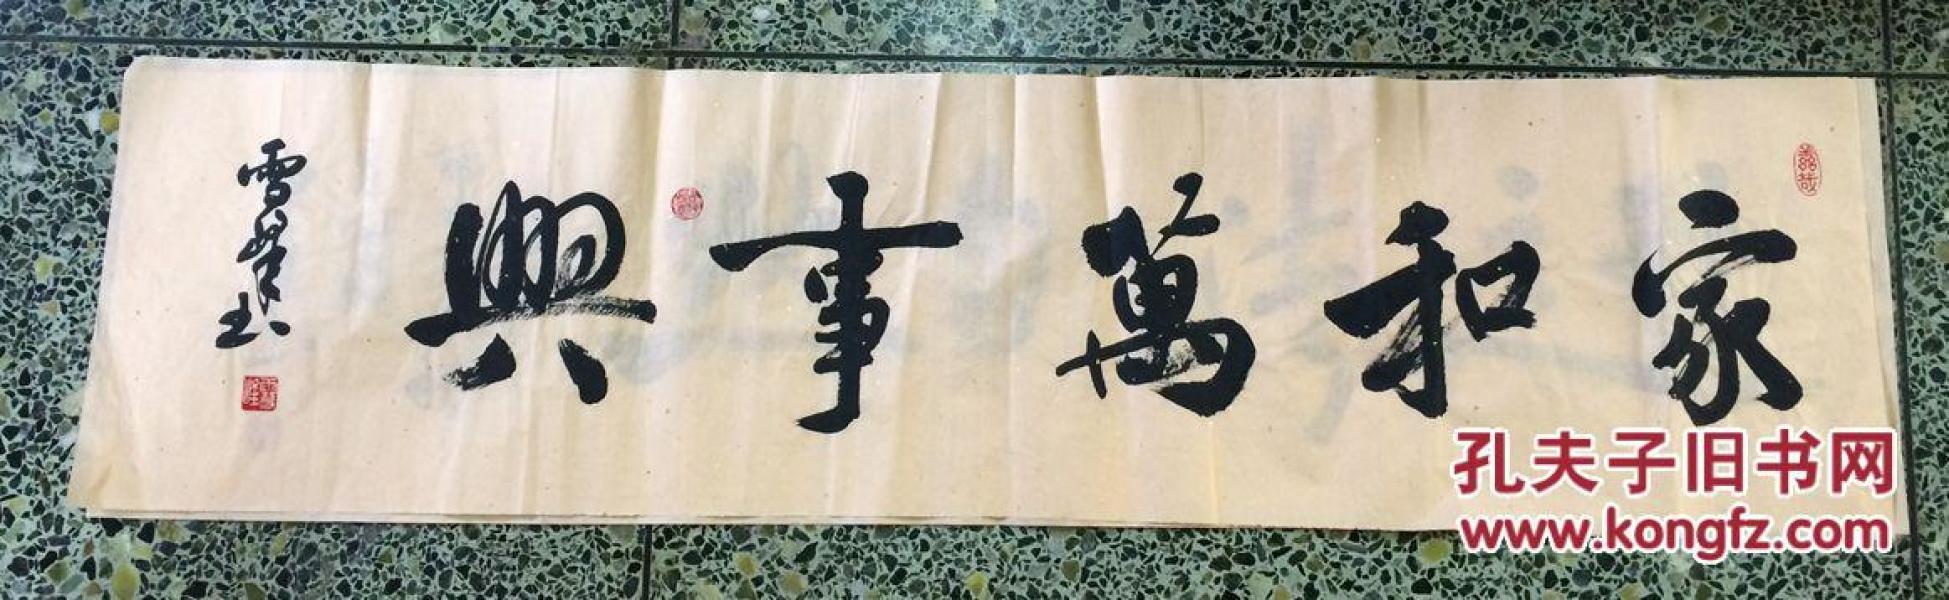 家和萬事興
雪峰书
孔夫子旧书网
www.kongfz.com